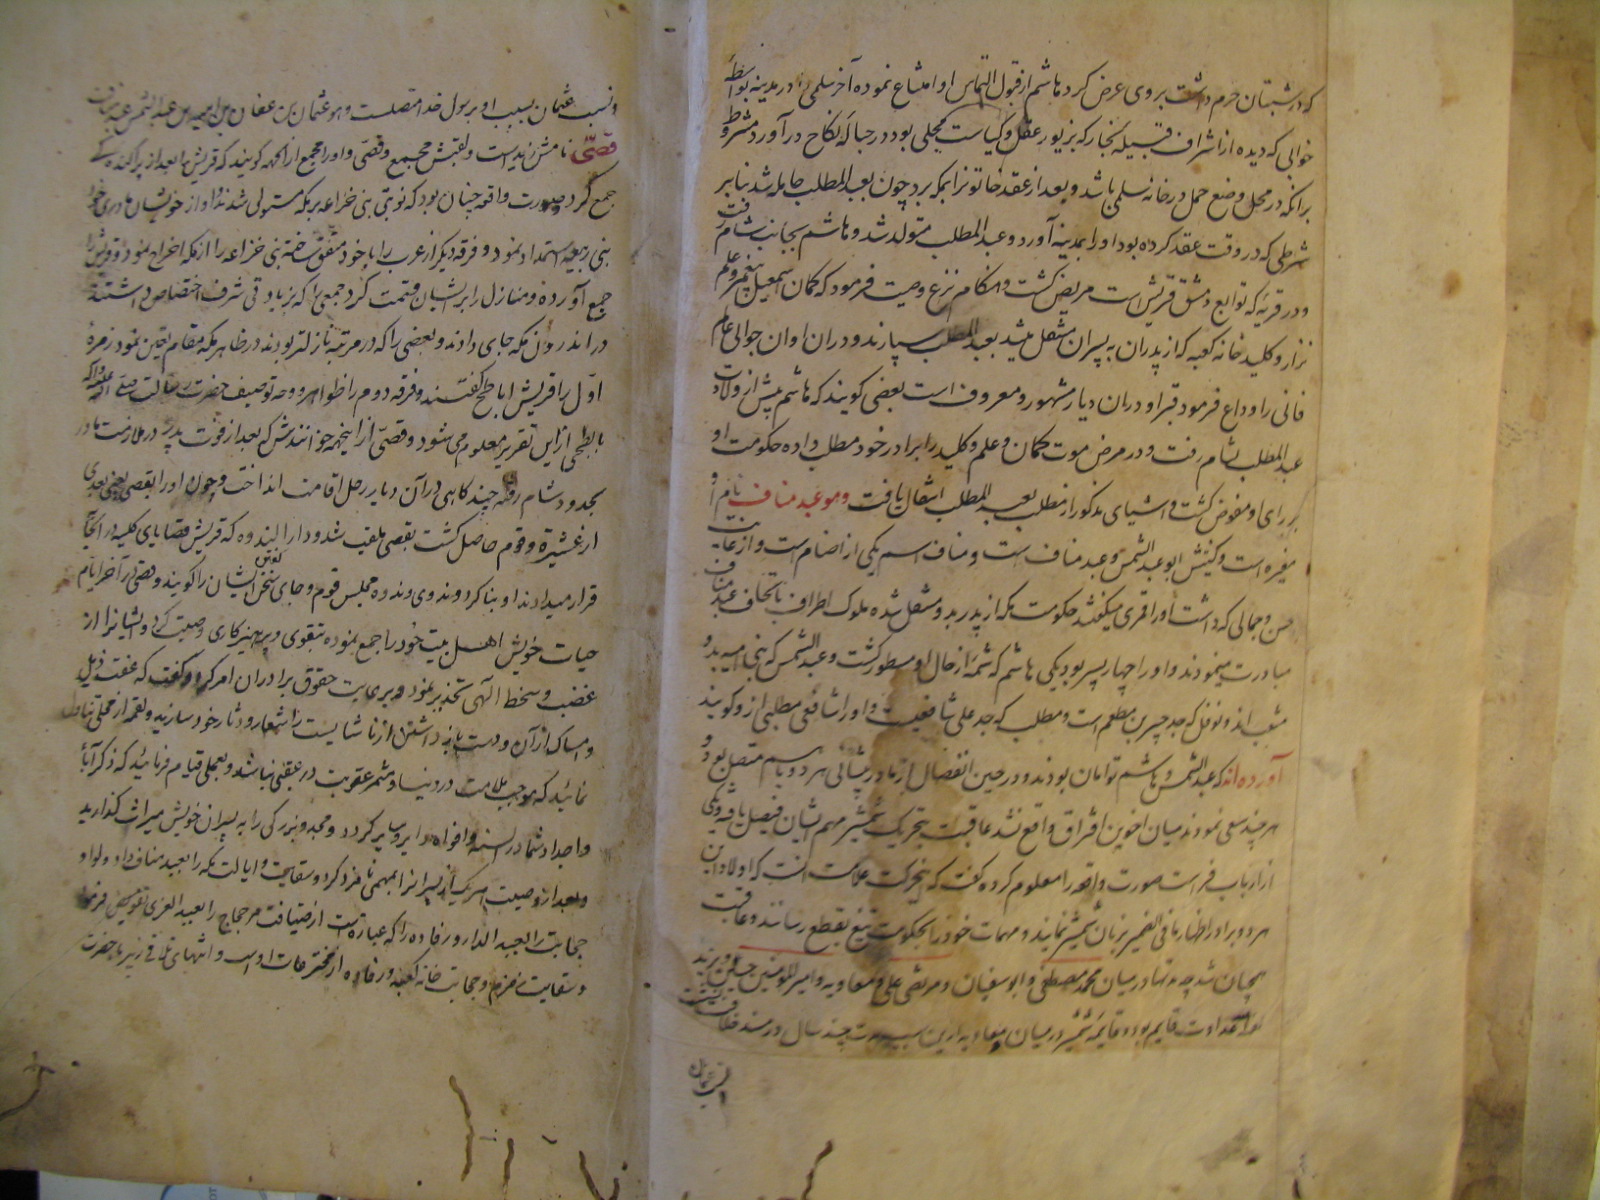 که در شبستان حرم داشت بر وی عرض کرد هاشم از قبول التماس او امتناع نموده آخر سلمی را در مدینه بواسطه
خوابی که دیده از اشراف قبیله نجار که بزیور عقل و کیاست محلی بود در حباله نکاح درآورد مشروط
برانکه در محل وضع حمل در خانه سلمی باشد و بعد از عقد خاتونرا بمکه برد چون بعبد المطلب حامله شد بنابر
شرطی که در وقت عقد کرده بود او را بمدینه آورد و عبد المطلب متولد شد و هاشم بجانب شام رفت
و در قریه که توابع دمشق قریش ست مریض کشت و هنکام نزع وصیت فرمود که کمان اسمعیل پیغمبر و علم
نزار و کلید خانه کعبه که از پدران به پسران منتقل میشد بعبد المطلب سپارند و در ان اوان جوالی عالم
فانی را وداع فرمود قبر او دران دیار مشهور و معروف است بعضی کویند که هاشم پیش از ولادت
عبد المطلب بشام رفت و در مرض موت کمان و علم و کلید را برادر خود مطلب داده حکومت او
بر رای او مفوض کشت و اشیای مذکور از مطلب بعبد المطلب انتقال یافت و هو عبد مناف نام او
مغیره است و کنیتش ابو عبد الشمس و عبد مناف است و مناف اسم یکی از اصنام ست و از غایت
حسن و جمالی که داشت او را قمری میکفتند حکومت مکه از پدر بدو منتقل شده ملوک اطراف باتحاف عبد مناف
مبادرت مینمودند و او را چهار پسر بود یکی هاشم که شمه از حال او مسطور کشت و عبد الشمس که بنی امیه بدو
منشعب اند و نوفل که جد جبیر بن مطعم است و مطلب که جد علی شافعیست و او را شافعی مطلبی ازو کویند
آورده اند که عبد الشمس و هاشم توامان بودند و در حین انفصال از مادر پیشانی هر دو باسم متصل بود و
هر چند سعی نمودند میان اخوین افتراق واقع نشد عاقبت بتحریک شمشیر مهم ایشان فیصل یافت یکی
از ارباب فراست صورت واقعه را معلوم کرده کفت که این حرکت علامت انست که اولاد این
هر دو برادر اظهار ما فی الضمیر بزبان شمشیر نمایند و مهمات خود را بحکومت تیغ بقطع رسانند و عاقبت
همچنان شد چه مدتها در میان محمد مصطفی و ابو سفیان و مرتضی علی و معاویه و امیر المؤمنین حسین و یزید
لوای عداوت قایم بود و قایمه شمشیر در میان معاویه ازین سبب مدت چند سال در مسند خلافت نشست
و نسب عثمان
و نسب عثمان بسبب او برسول خدا متصلست و هو عثمان بن عفان بن ابی امیه بن عبد الشمس عبد مناف
قصیّ نامش زید است و لقبش مجمع و قصی و او را مجمع از انجهه کویند که قریش را بعد از پراکنده کی
جمع کرد و صورت واقعه چنان بود که نوبتی بنی خزاعه بر مکه مستولی شدند و او از خویشان مادری خود
بنی ربیعه استمداد نمود و فرقه دیکر از عرب را با خود متفق ساخته بنی خزاعه را از مکه اخراج نمود و قریش را
جمع آورده و منازل را بر ایشان قسمت کرد جمعی را که بزیادتی شرف اختصاص داشتند
در اندرون مکه جای دادند و بعضی را که در مرتبه نازلتر بودند در ظاهر مکه مقام تعین نمود زمره
اول را قریش اباطح کفتند و فرقه دوم را ظواهر و وجه توصیف حضرت رسالت صلی الله علیه و آله
بابطحی از این تقریر معلوم می شود و قصی از اینجهه خوانندش که بعد از فوت پدر در ملازمت مادر
بحدود شام رفته چند کاهی در آن دیار رحل اقامت انداخت و چون او را بقصی یعنی بعدی
از عشیره و قوم حاصل کشت بقصی ملقب شد و دار الندوه که قریش قضایای کلیه در انجا
قرار میدادند او بنا کرد و ندوی و ندوه مجلس قوم و جای سخن کفتن ایشان را کویند و قصی در آخر ایام
حیات خویش اهل بیت خود را جمع نموده بتقوی و پرهیزکاری وصیت کرد و ایشانرا از
غضب و سخط الهی تحذیر نموده برعایت حقوق برادران امر کرد و کفت که عفت ذیل
و امساک از آن و دست باز داشتن از ناشایست را شعار و دثار خود سازید و لقمه از محلی تناول
نمائید که موجب ملامت در دنیا و مثمر عقوبت در عقبی نباشد و بعملی قیام فرمائید که ذکر آبا
و اجداد شما در السنه و افواه دایر و سایر کردد و مجد و بزرکی را به پسران خویش میراث کذارید
و بعد از وصیت هر یک از پسرانرا بمهمی نامزد کرد و سقایت و ایالت مکه را بعبد مناف داد و لوا و
حجابت را بعبد الدار و رفاده را که عبارتست از ضیافت مر حجاج را بعبد العزی تفویض فرمود
و سقایت زمزم و حجابت خانه کعبه و رفاده از مخترعات اوست و انتهای تلاقی زبیر با حضرت